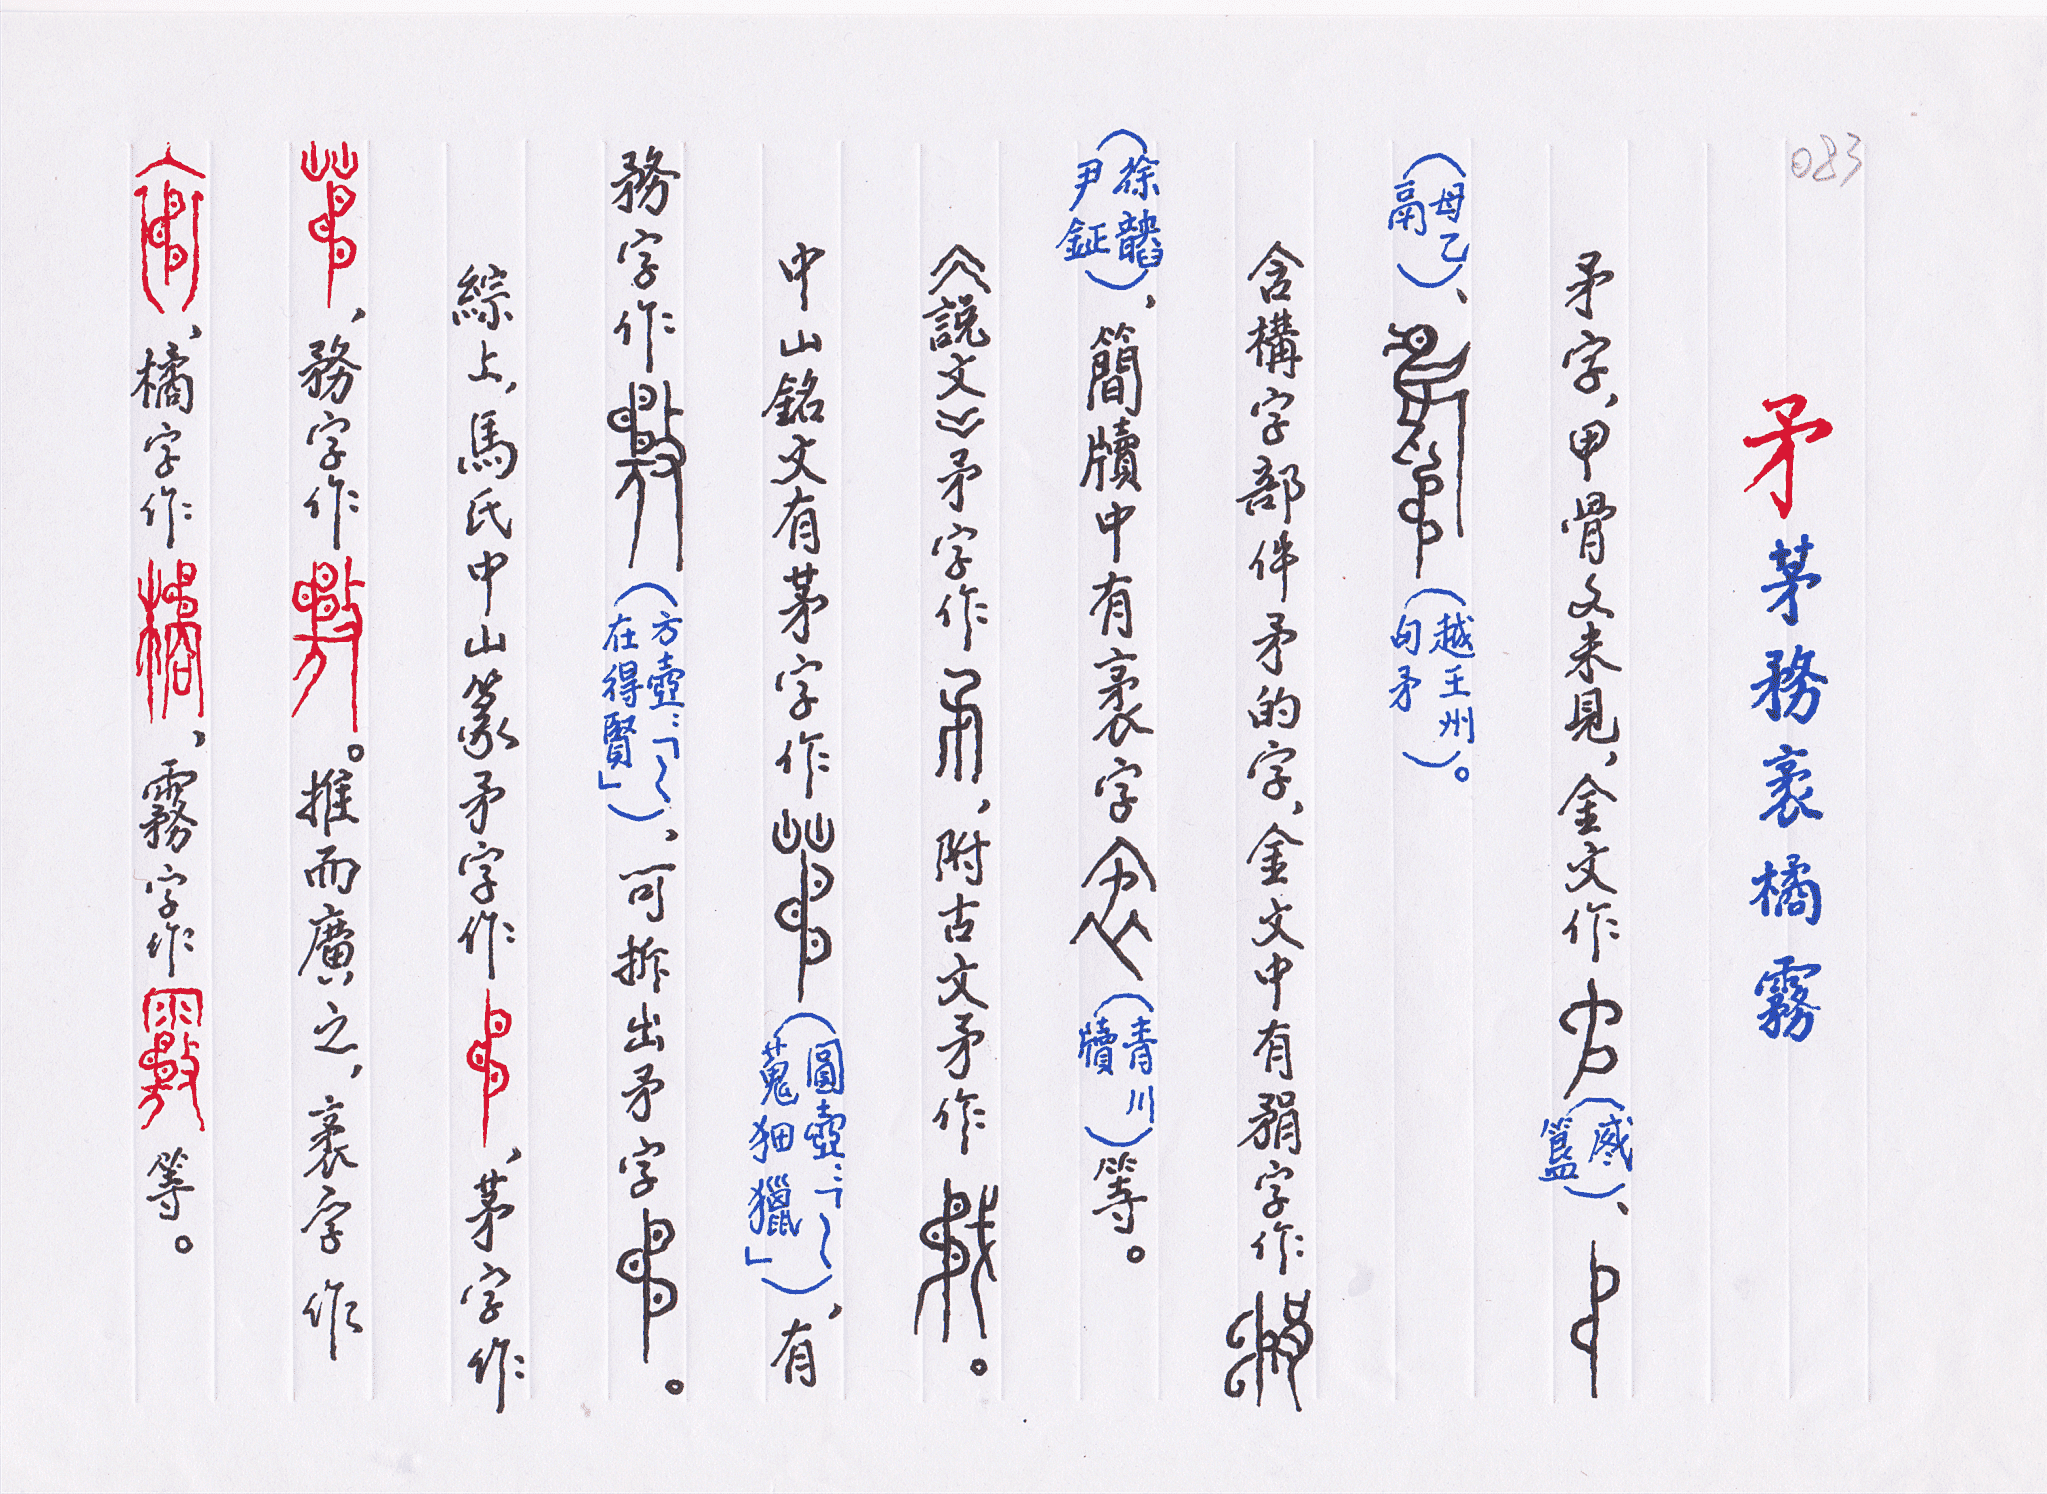 083
矛茅務袤橘霧
矛字，甲骨文未見，金文作（𢦚簋）、
（母乙鬲）、（越王州句矛）。
含構字部件矛的字，金文中有字作
（徐尹鉦），簡牘中有袤字（青川牘）等。
《說文》矛字作，附古文矛作。
中山銘文有茅字作（圓壺：「～蒐狃獵」），有
務字作（方壺：「～在得賢」），可拆出矛字。
綜上，馬氏中山篆矛字作，茅字作
，務字作。推而廣之，袤字作
，橘字作，霧字作等。